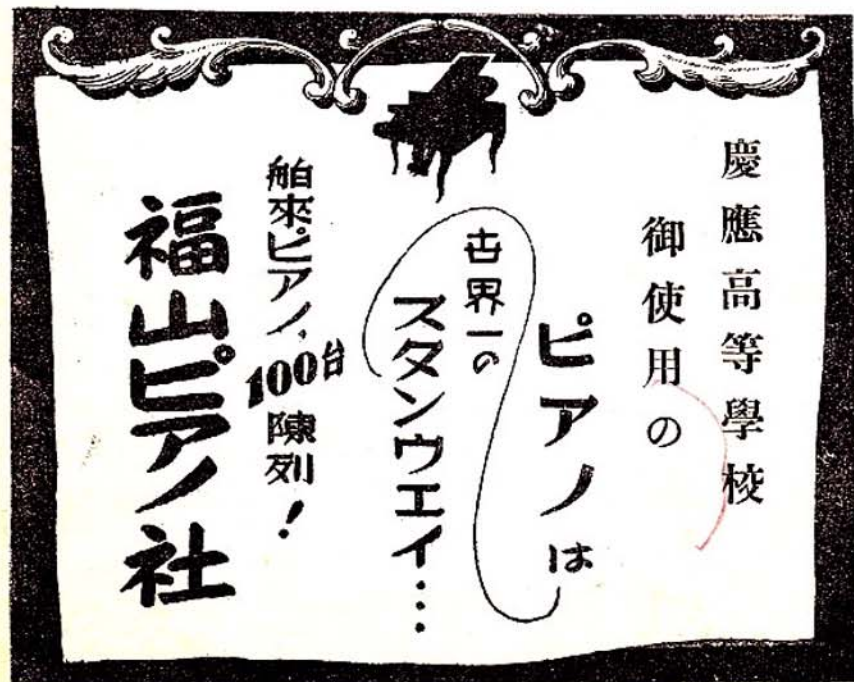 慶應高等學校
御使用の
ピアノは
世界一の
スタンウエイ…
舶來ピアノ,100台陳列!
福山ピアノ社